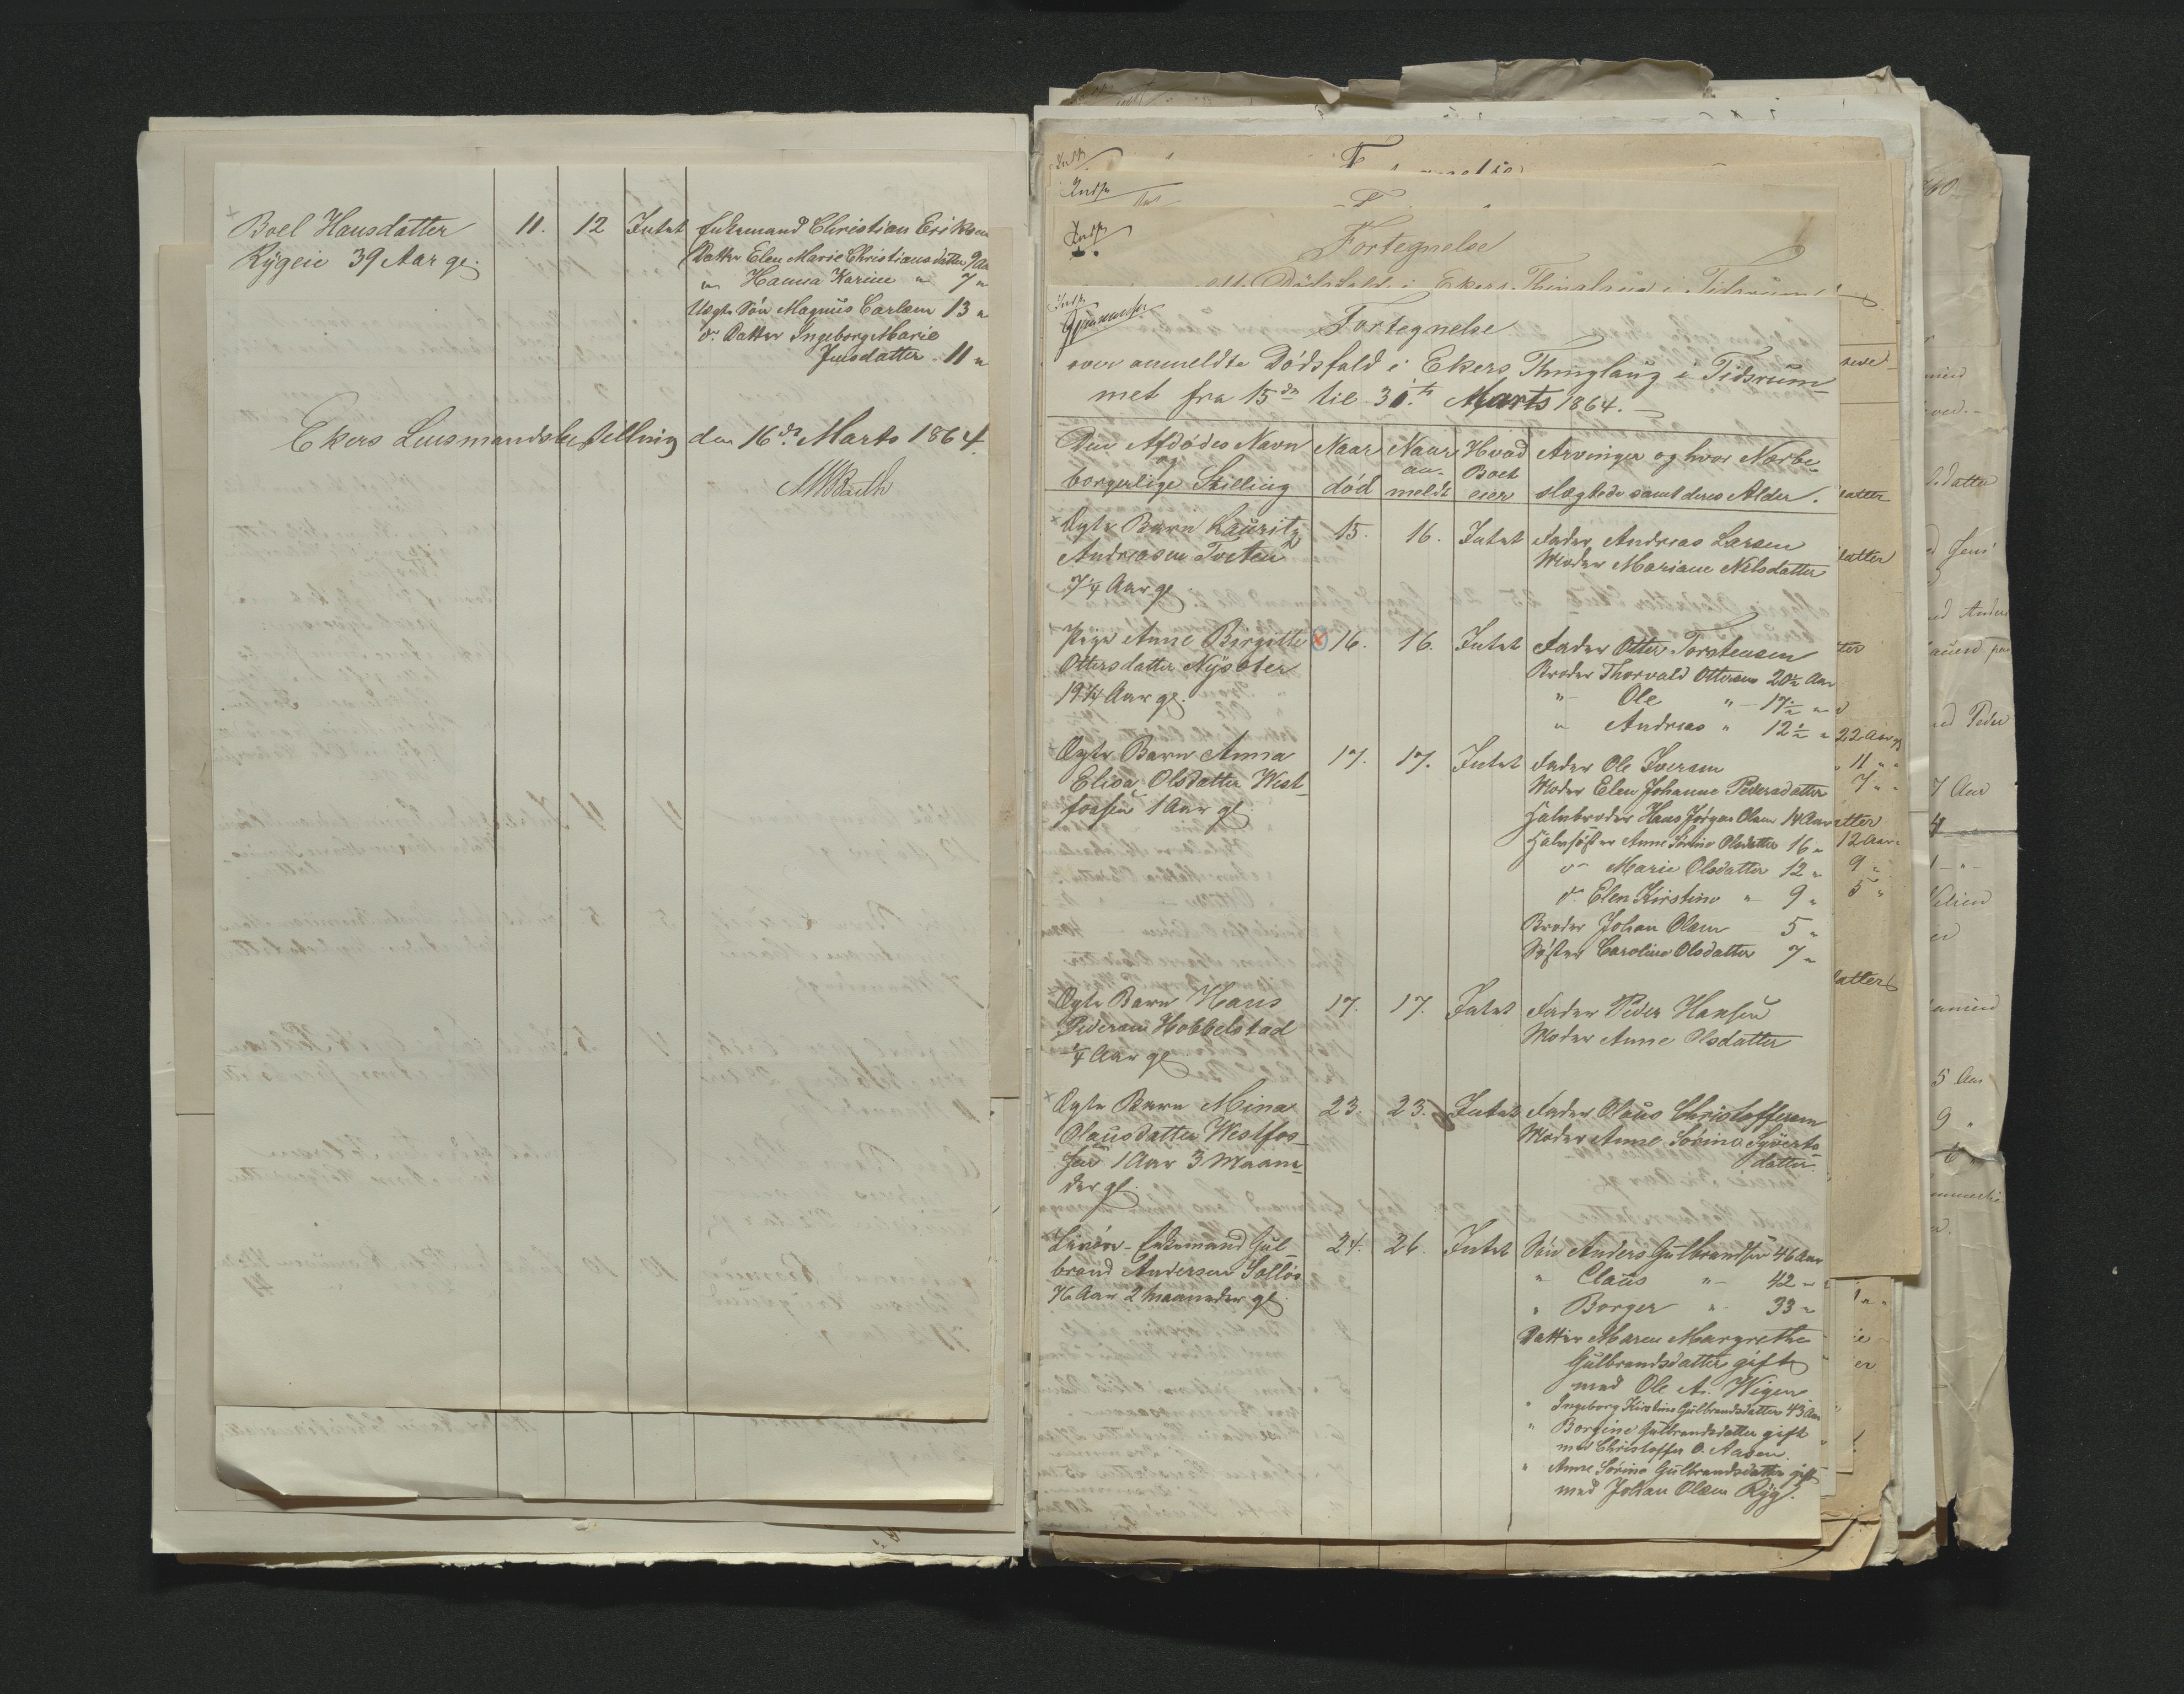 Boel Hansdatter 11. 12 Intet Enkemand Christian Eriksen
Rygeie 39 Aar gl. Datter Elen Marie Christiansdatter 9 Aar
" Hanna Karine " 7 "
Uægte Søn Magnus Carlsen 13 "
do Datter Ingeborg Marie
Jensdatter 11 "
Ekers Lensmandsbestilling den 16de Marts 1864.
Fortegnelse
Fortegnelse
over anmeldte Dødsfald i Ekers Thinglaug i Tidsrum-
met fra 15de til 31te Marts 1864.
Den Afdødes Navn Naar Naar Hvad Arvinger og hvor Nærbe-
og an- Boet
borgerlige Stilling død meldt eier slægtede samt deres Alder.
Ægte Barn Lauritz 15. 16. Intet Fader Andreas Larsen
Andreasen Moder Mariane Nilsdatter
7 1/4 Aar gl
Pige Anne Birgitte 16. 16. Intet Fader Otter Torstensen
Ottersdatter Nysæter Broder Thorvald Ottersen 20 1/2 Aar
19 1/4 Aar gl. " Ole " 17 1/2 "
" Andreas " 12 1/2 "
Ægte Barn Anna 17. 17. Intet Fader Ole Iversen
Elisa Olsdatter West- Moder Elen Johanne Pedersdatter
fossen 1 Aar gl Halvbroder Hans Jørgen Olsen 14 Aar
Halvsøster Anne Sørine Olsdatter 16 "
do Marie Olsdatter 12 "
do Elen Kirstine " 9 "
Broder Johan Olsen 5 "
Søster Caroline Olsdatter 7 "
Ægte Barn Hans 17. 17. Intet Fader Peder Hansen
Pedersen Hobbelstad Moder Anne Olsdatter
1/4 Aar gl
Ægte Barn Mina 23. 23. Intet Fader Olaus Christoffersen
Olausdatter Westfos- Moder Anne Sørine Syverts-
sen 1 Aar 3 Maane- datter.
der gl.
Enkemand Gul- 24. 26. Intet Søn Anders Gulbrandsen 46 Aar
brand Andersen " Claus " 42 "
76 Aar 2 Maaneder gl. " Borger " 33 "
Datter Maren Margrethe
Gulbrandsdatter gift
med Ole A. Wigen
" Ingeborg Kirstine Gulbrandsdatter 43 Aar
" Borgine Gulbrandsdatter gift
med Christoffer O. Aasen.
" Anne Sørine Gulbrandsdatter gift
med Johan Olsen Ryg.